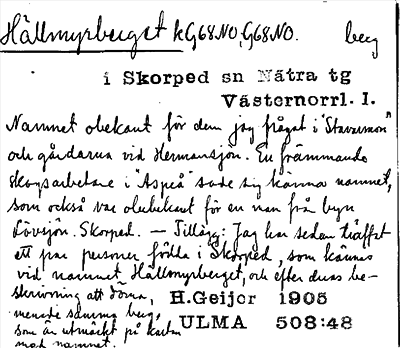 Hällmyrberget kG68NO, G68NO. berg
i Skorped sn Nätra tg
Västernorrl. l.
Namnet obekant för dem jag frågat i "Stavarmon"
och gårdarna vid Hermansjön. En främmande
skogsarbetare i "Aspeå" sade sig känna namnet,
som också var obekant för en man från byn
Lövsjön. Skorped. — Tillägg: Jag har sedan träffat
ett par personer födda i Skorped, som kännas
vid namnet Hällmyrberget, och efter deras be-
skrivning att döma, H.Geijer 1905
menade samma berg,
som är utmärkt på kartan ULMA 508:48
med namnet.